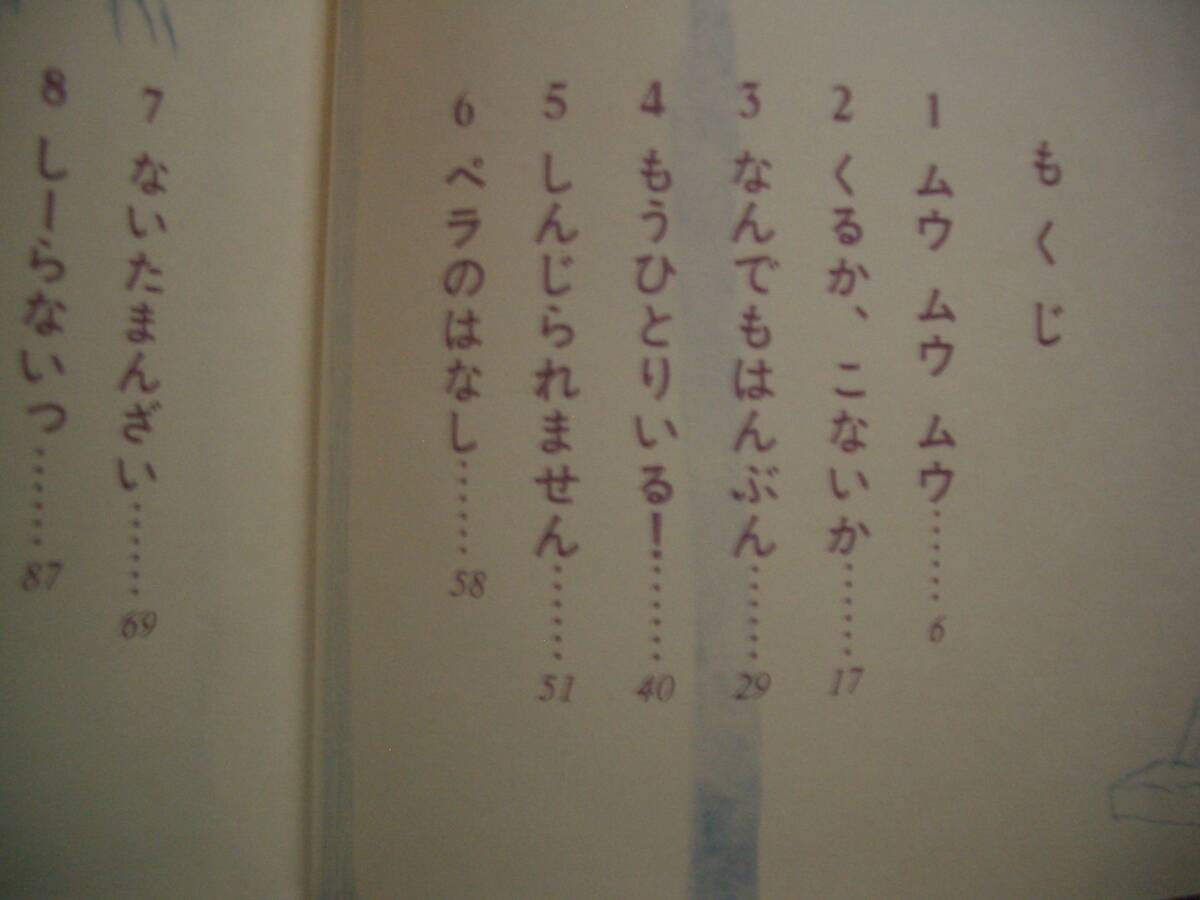 もくじ
1 ムウ ムウ ムウ……6
2 くるか、こないか……17
3 なんでもはんぶん……29
4 もうひとりいる!……40
5 しんじられません……51
6 ペラのはなし……58
7 ないたまんざい……69
8 しーらないっ……87